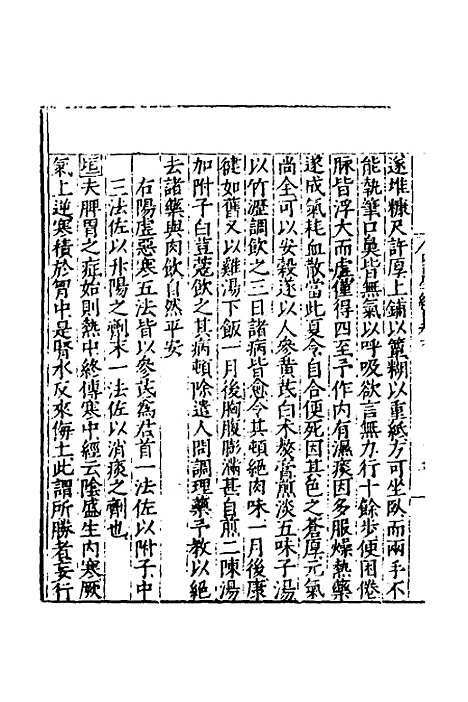 遂堆糠尺許厚上鋪以簟糊以重紙方可坐臥而兩手不
能執筆口鼻皆無氣以呼吸欲言無力行十餘步便困倦
脉皆浮大而虛僅得四至予作内有濕痰因多服燥熱藥
遂成氣耗血散當此夏令自合便死因其色之蒼厚元氣
尚全可以安穀遂以人參黃芪白木熬膏煎淡五味子湯
以竹瀝調飲之三日諸病皆愈令其頓絕肉味一月後康
健如舊又以雞湯下飯一月後胸腹膨滿甚自煎二陳湯
加附子白荳蔻飲其病頓除遣人問調理藥予教以絕
去諸藥與肉飲自然平安
右陽虛惡寒五法皆以參芪為君首一法佐以附子中
三法佐以升陽之劑末一法佐以消痰之劑也
垣夫脾胃之症始則熱中終傳寒中經云陰盛生内寒厥
氣上逆寒積於胃中是腎水反來侮土此謂所勝者妄行